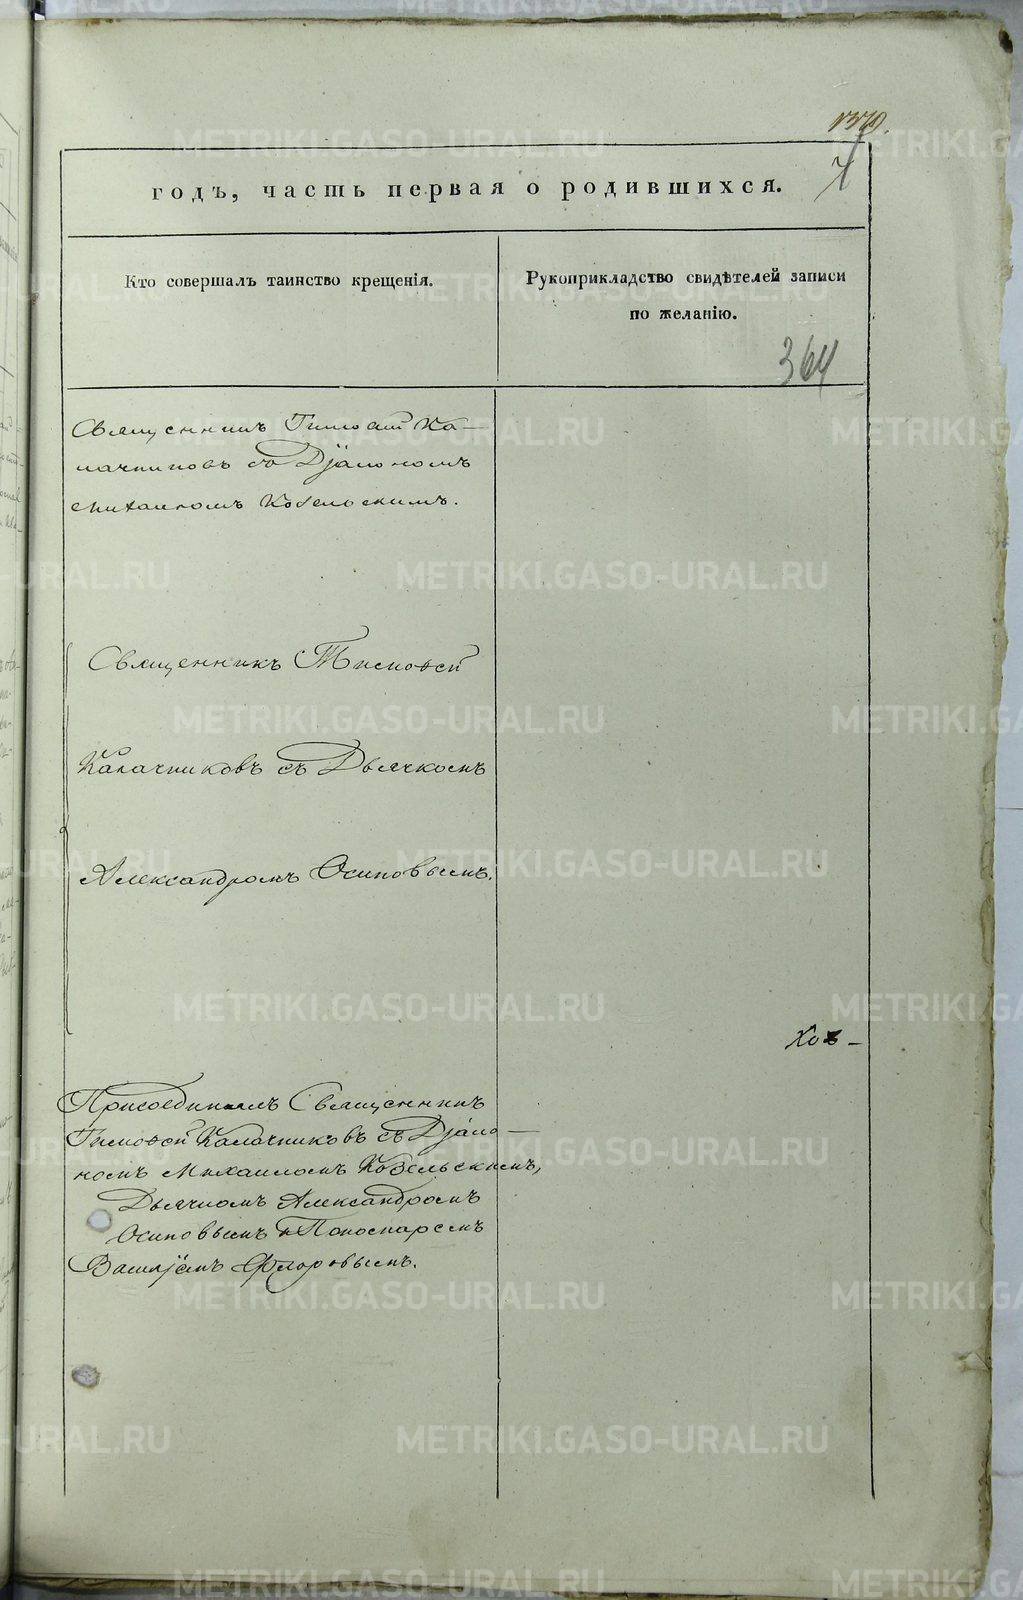 годъ, часть первая о родившихся.
Кто совершалъ таинство крещенія.
Рукоприкладство свидѣтелей записи
по желанію.
364
Священникъ Тимоѳей Ка-
лачниковъ съ Діакономъ
Михаиломъ Козельскимъ.
Священникъ Тимоѳей
Калачниковъ съ Дьячкомъ
Александромъ Осиповымъ.
Присоединялъ Священникъ
Тимоѳей Калачниковъ съ Діако-
номъ Михаиломъ Козельскимъ,
Дьячкомъ Александромъ
Осиповымъ и Пономаремъ
Василіемъ Флоровымъ.
METRIKI.GASO-URAL.RU